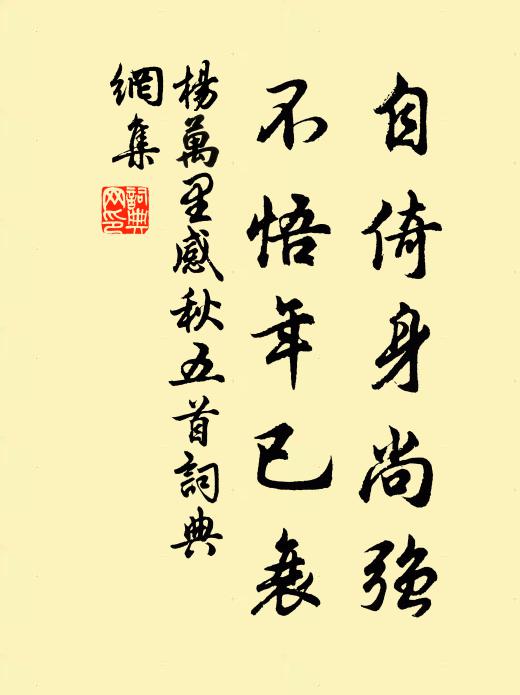 自倚身尚強
不悟年已衰
楊萬里感秋五首詞典
網集
詞典網印